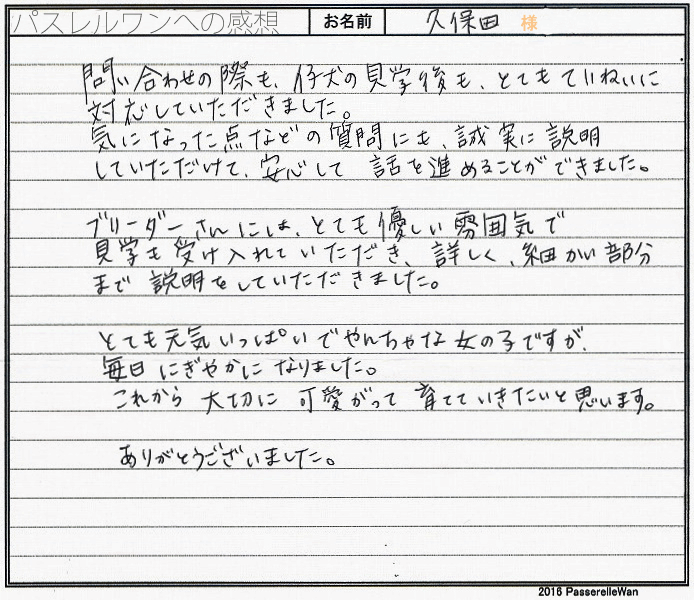 パスレルワンへの感想 お名前 久保田 様
問い合わせの際も、仔犬の見学後も、とてもていねいに
対応していただきました。
気になった点などの質問にも、誠実に説明
していただけて、安心して 話を進めることができました。
ブリーダーさんには、とても優しい雰囲気で
見学も受け入れていただき、詳しく、細かい部分
まで説明をしていただきました。
とても元気いっぱいでやんちゃな女の子ですが、
毎日にぎやかになりました。
これから 大切に 可愛がって 育てていきたいと思います。
ありがとうございました。
2016 PasserelleWan